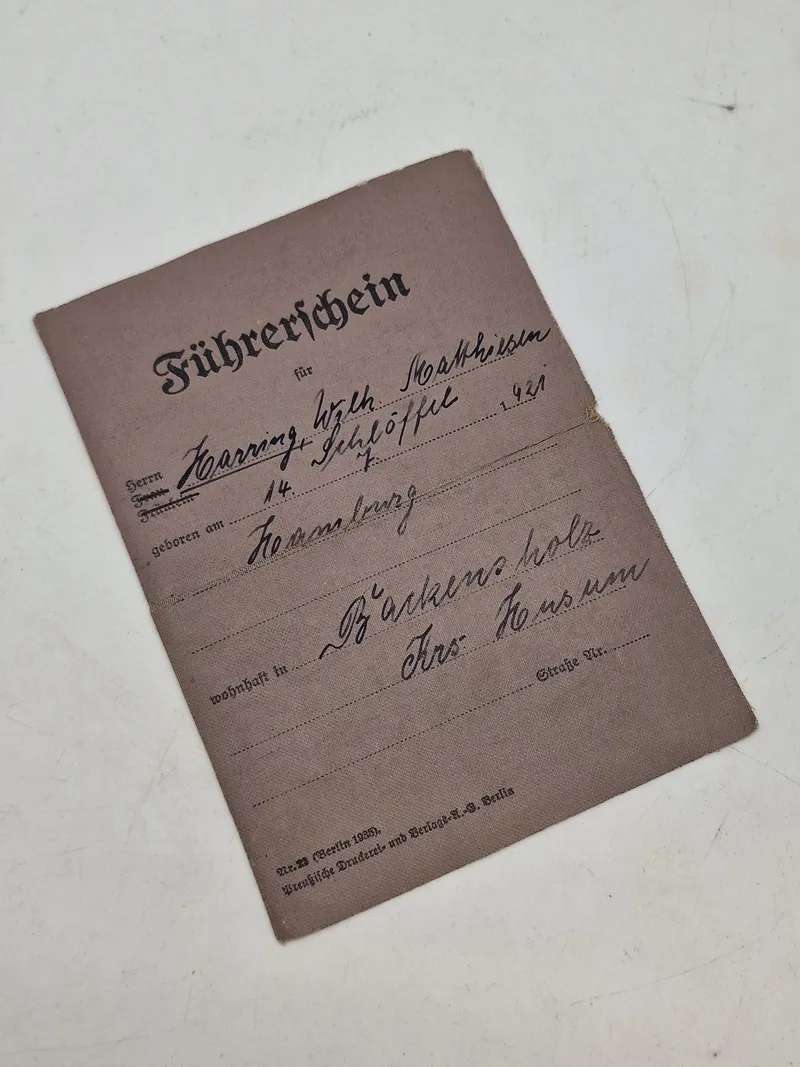 Führerschein
für
Herrn Harring, Wilh. Matthiesen
Frau Schlöffel
Fräulein
geboren am 14. 7. 1921
Hamburg
wohnhaft in Backensholz
Krs. Husum
Straße Nr.
Nr. 23 (Berlin 1935).
Preußische Druckerei- und Verlags-A.-G. Berlin